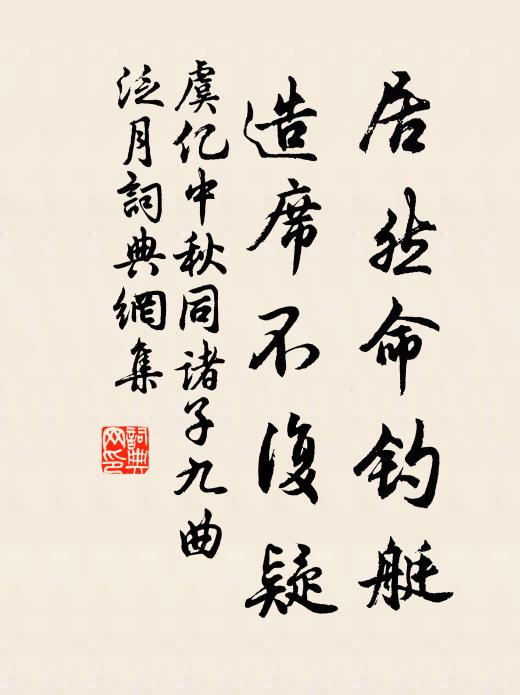 居然命钓艇
造席不復疑
虞亿中秋同諸子九曲
泛月詞典網集
詞典
网印